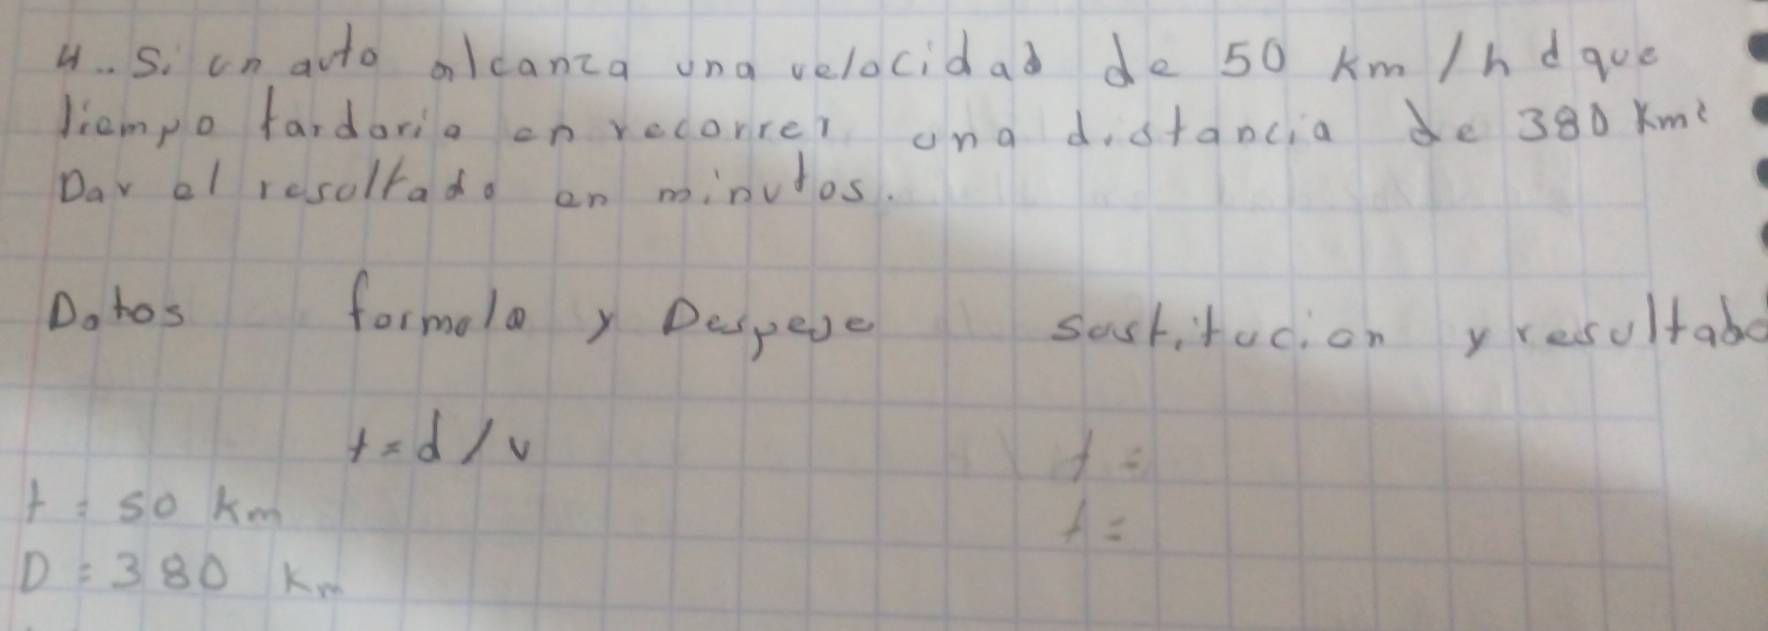 4.. Si un auto alcanza una velocidad de 50 km/h d que
tiempo tardaria en recorrer una distancia de 380 Km?
Dar el resultado en minutos.
Datos formula y Despeje sustitucion y resultado
t = d / v t =
t = 50 km t =
D = 380 Km